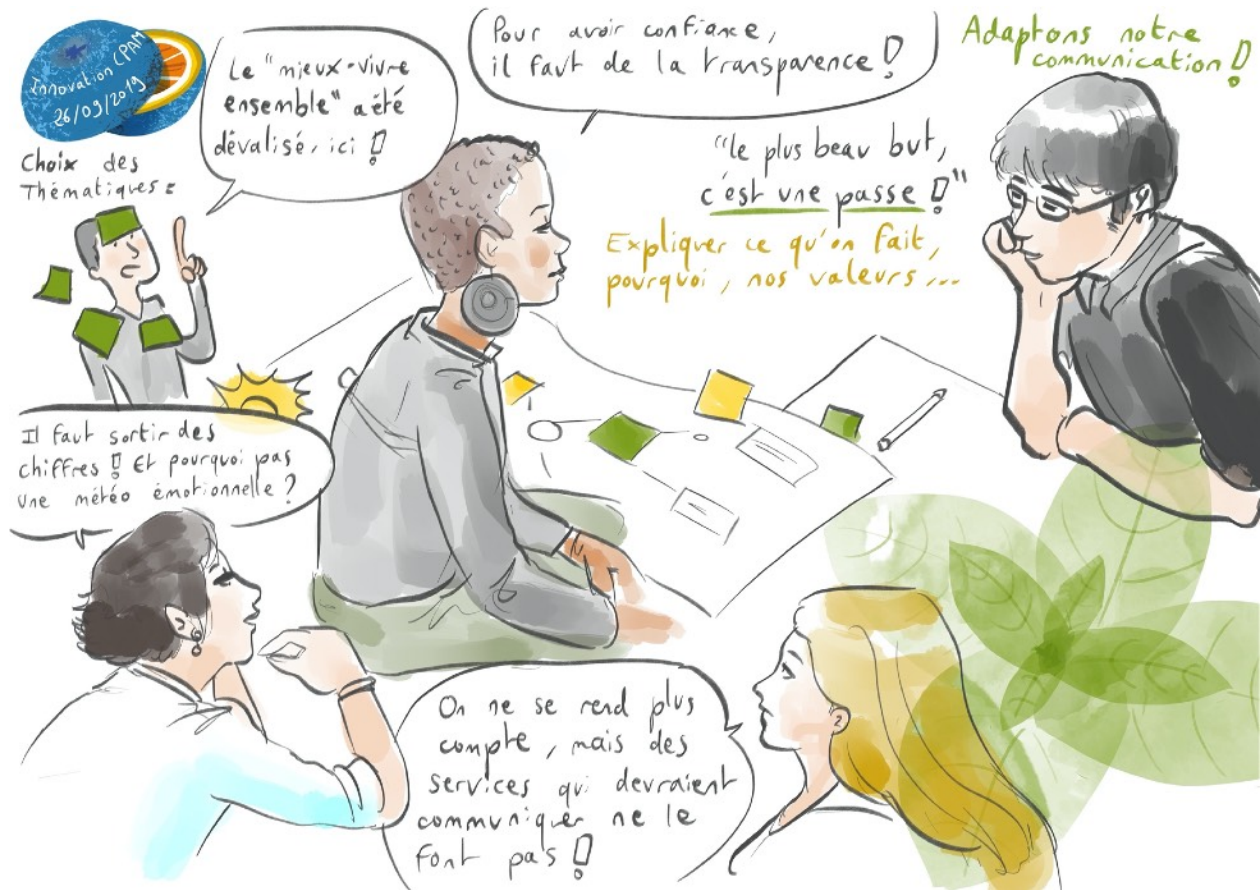 Innovation CPAM
26/09/2019
Choix des
Thématiques :
Le "mieux-vivre
ensemble" a été
dévalisé, ici !
Pour avoir confiance,
il faut de la transparence !
Adaptons notre
communication !
"le plus beau but,
c'est une passe !"
Expliquer ce qu'on fait,
pourquoi, nos valeurs ...
Il faut sortir des
chiffres ! Et pourquoi pas
une météo émotionnelle ?
On ne se rend plus
compte, mais des
services qui devraient
communiquer ne le
font pas !